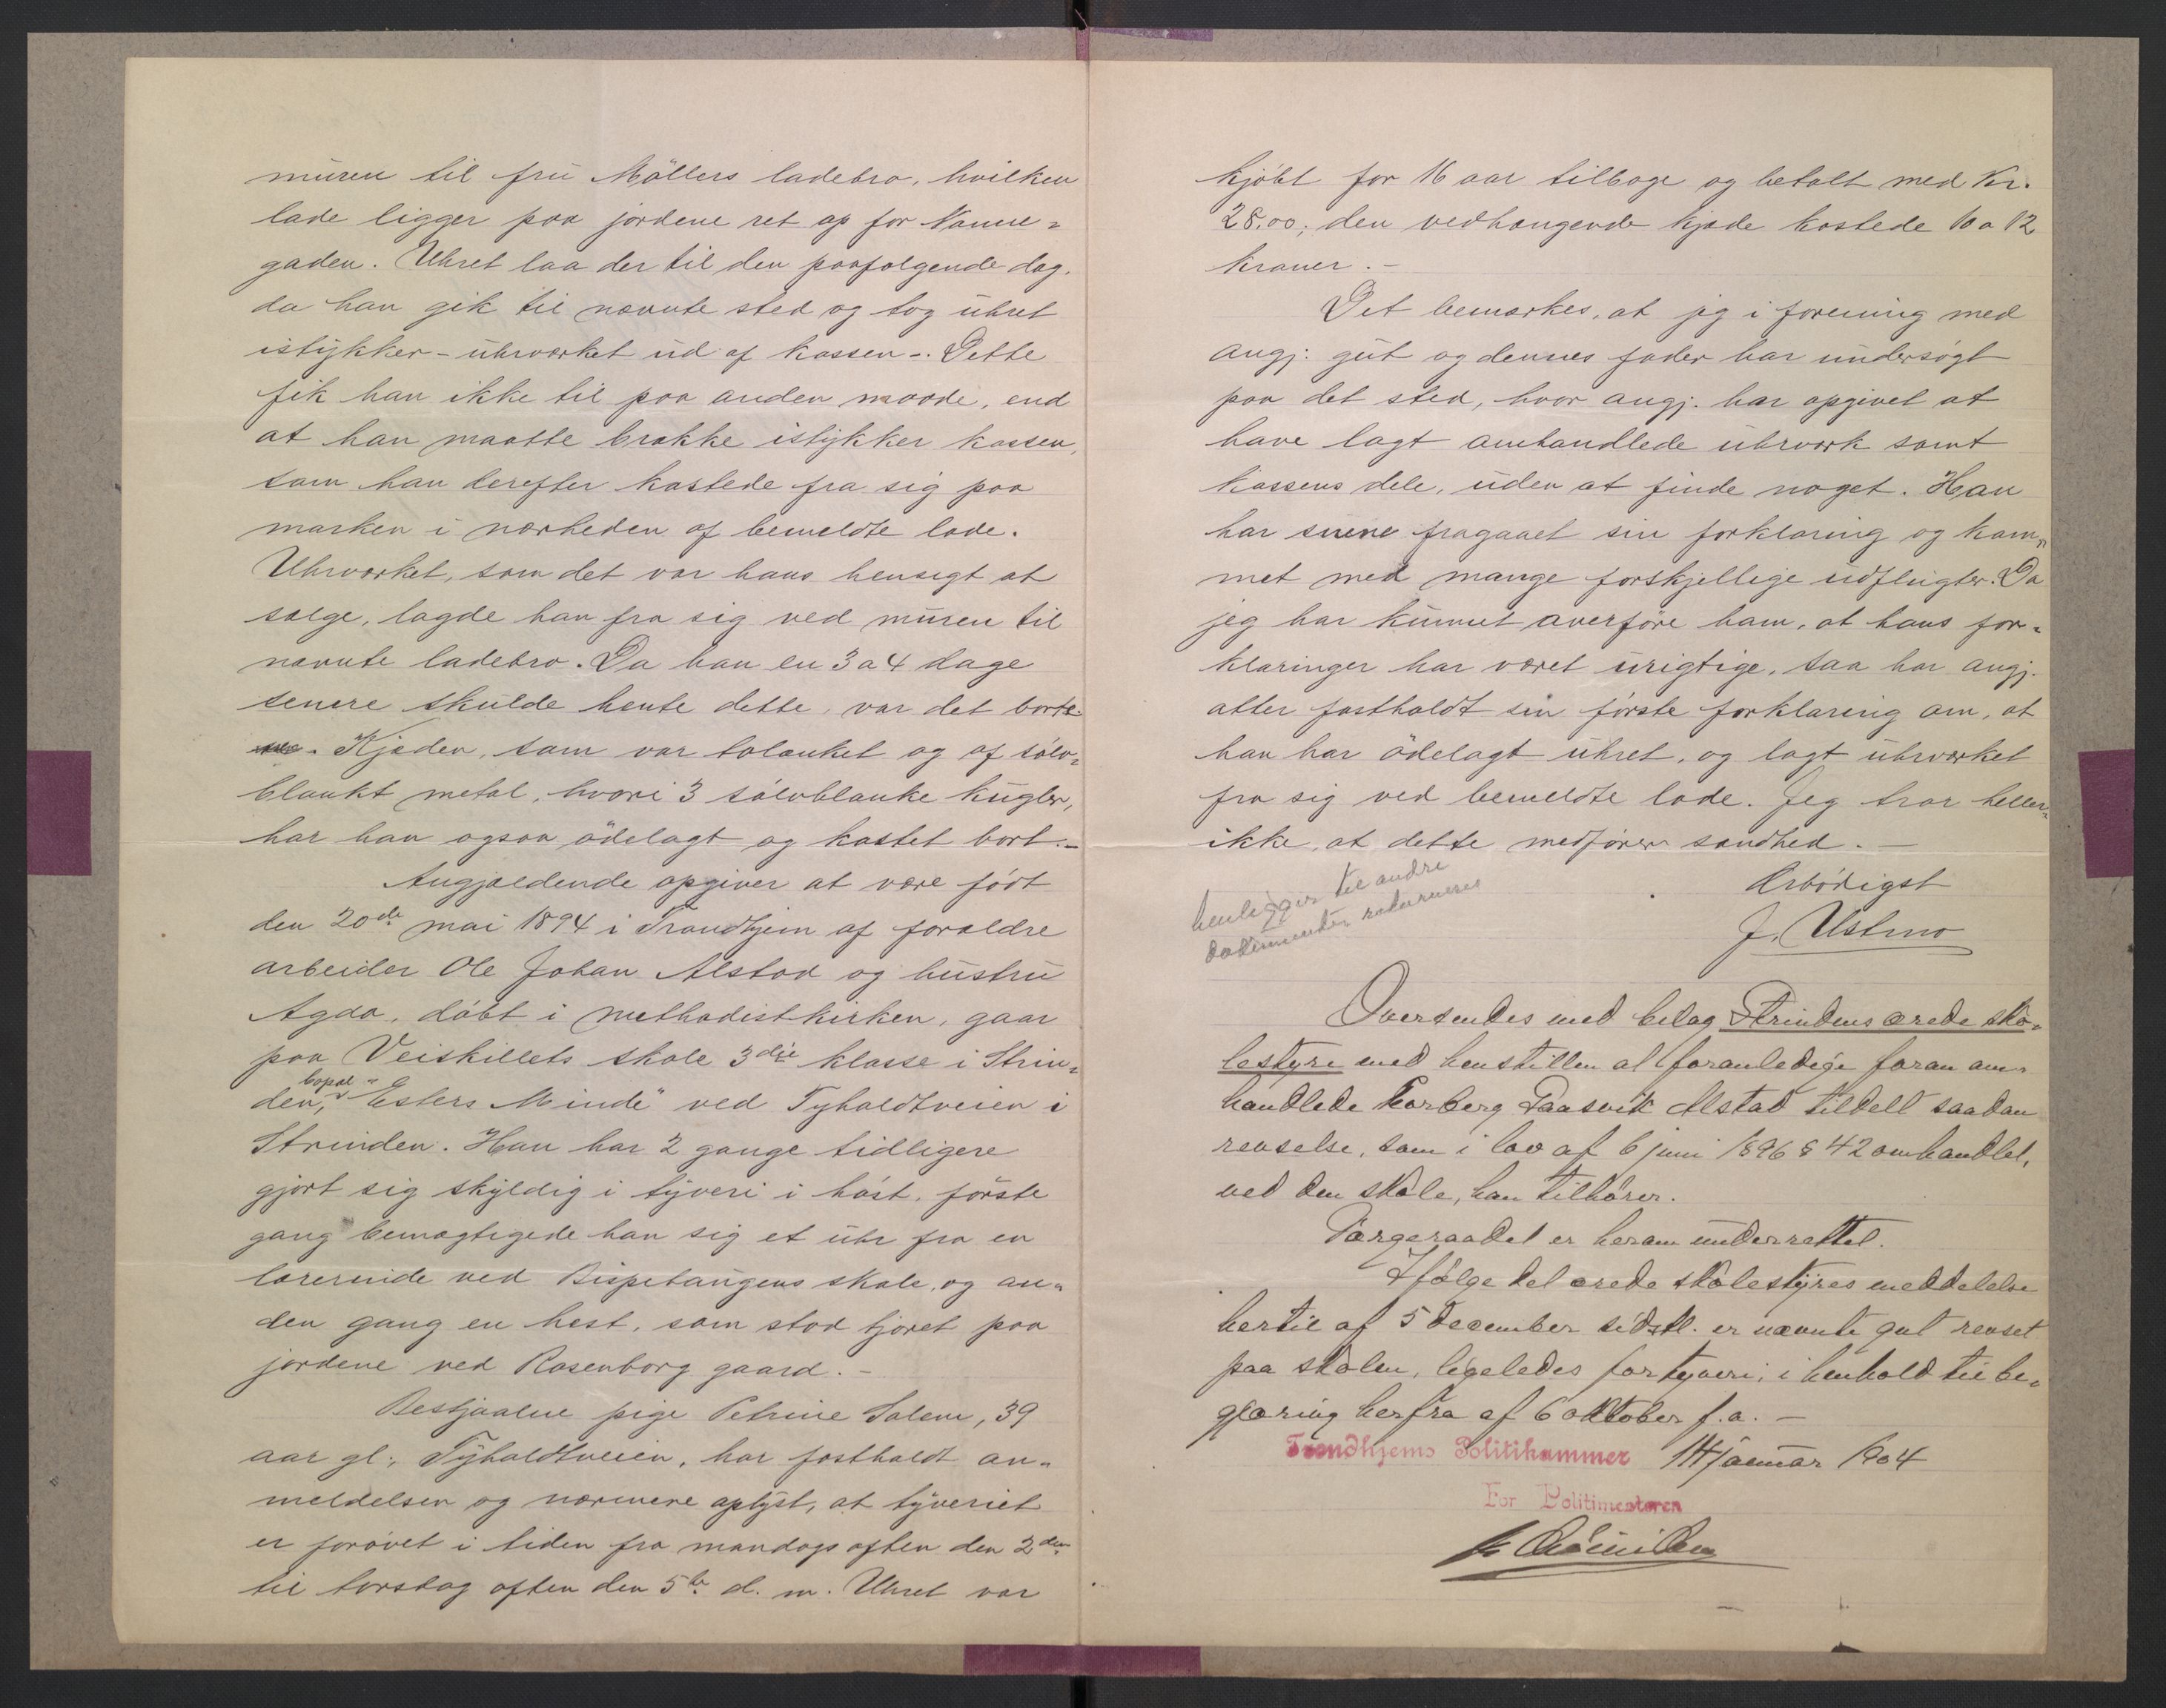 muren til fru Möllers ladebro, hvilken
lade ligger paa jordene ret op for Nanne-
gaden. Uhret laa der til den paafølgende dag,
da han gik til nævnte sted og tog uhret
istykker - uhrværket ud af kassen -. Dette
fik han ikke til paa anden maade, end
at han maatte brække istykker kassen,
som han derefter kastede fra sig paa
marken i nærheden af bemeldte lade.
Uhrværket, som det var hans hensigt at
sælge, lagde han fra sig ved muren til
nævnte ladebro. Da han en 3 a 4 dage
senere skulde hente dette, var det borte.
Kjæden, som var tolænket og af sølv-
blankt metal, hvori 3 sølvblanke kugler,
har han ogsaa ödelagt og kastet bort. -
Angjældende opgiver at være født
den 20de mai 1894 i Trondhjem af forældre
arbeider Ole Johan Alstad og hustru
Agda, døbt i methodistkirken, gaar
paa Veiskillets skole 3die klasse i Strin-
den, bopæl "Esters Minde" ved Tyholdtveien i
Strinden. Han har 2 gange tidligere
gjort sig skyldig i tyveri i høst, første
gang bemægtigede han sig et uhr fra en
lærerinde ved Bispehaugens skole, og an-
den gang en hest, som stod tjoret paa
jordene ved Rosenborg gaard. -
Bestjaalne pige Petrine Salem, 39
aar gl., Tyholdtveien, har fastholdt an-
meldelsen og nærmere oplyst, at tyveriet
er forøvet i tiden fra mandags aften den 2den
til torsdag aften den 5te d. m. Uhret var
kjøbt for 16 aar tilbage og betalt med Kr.
28.00; den vedhængende kjæde kostede 10 a 12
kroner. -
Det bemærkes, at jeg i forening med
angj. gut og dennes fader har undersøgt
paa det sted, hvor angj. har opgivet at
have lagt omhandlede uhrværk samt
kassens dele, uden at finde noget. Han
har senere fragaaet sin forklaring og kom-
met med mange forskjellige udflugter. Da
jeg har kunnet overføre ham, at hans for-
klaringer har været urigtige, saa har angj.
atter fastholdt sin første forklaring om, at
han har ödelagt uhret, og lagt uhrværket
fra sig ved bemeldte lade. Jeg tror heller
ikke, at dette medfører sandhed. -
Ærbødigst
J. Ustmo
henligger til andre
dokumenter returneres
Oversendes med bilag Strindens ærede sko-
lestyre med henstillen at foranledige foran om-
handlede Thorberg Paasvik Alstad tildelt saadan
revselse, som i lov af 6 juni 1896 § 42 omhandlet,
ved den skole, han tilhører.
Værgeraadet er herom underrettet.
Ifølge det ærede skolestyres meddelelse
hertil af 5 december sidstl. er nævnte gut revset
paa skolen, ligeledes for tyveri, i henhold til be-
gjæring herfra af 6 oktober f. a. -
Trondhjems Politikammer 14 januar 1904
For Politimesteren